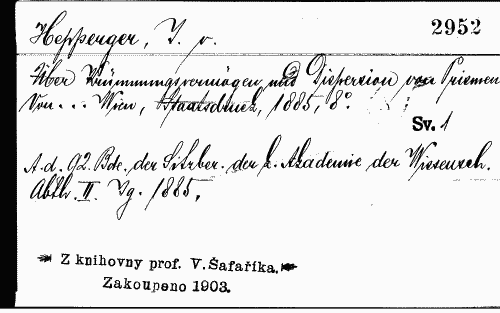 2952
Hepperger, J. v.
Über Krümmungsvermögen und Dispersion von Prismen
Von... Wien, Staatsdruck, 1885, 8°.
Sv. 1
A. d. 92. Bde. der Sitzber. der k. Akademie der Wissensch.
Abth. II. Jg. 1885.
Z knihovny prof. V. Šafaříka.
Zakoupeno 1903.